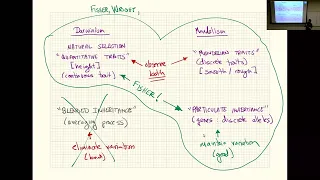 FISHER, WRIGHT,
Darwinism
Mendelism
NATURAL SELECTION
"QUANTITATIVE TRAITS"
[height]
(continuous trait)
observe both
"MENDELIAN TRAITS"
(discrete traits)
[smooth / rough]
FISHER!
"BLENDED INHERITANCE"
(averaging process)
eliminate variation
(bad)
"PARTICULATE INHERITANCE"
(genes: discrete alleles)
maintain variation
(good)